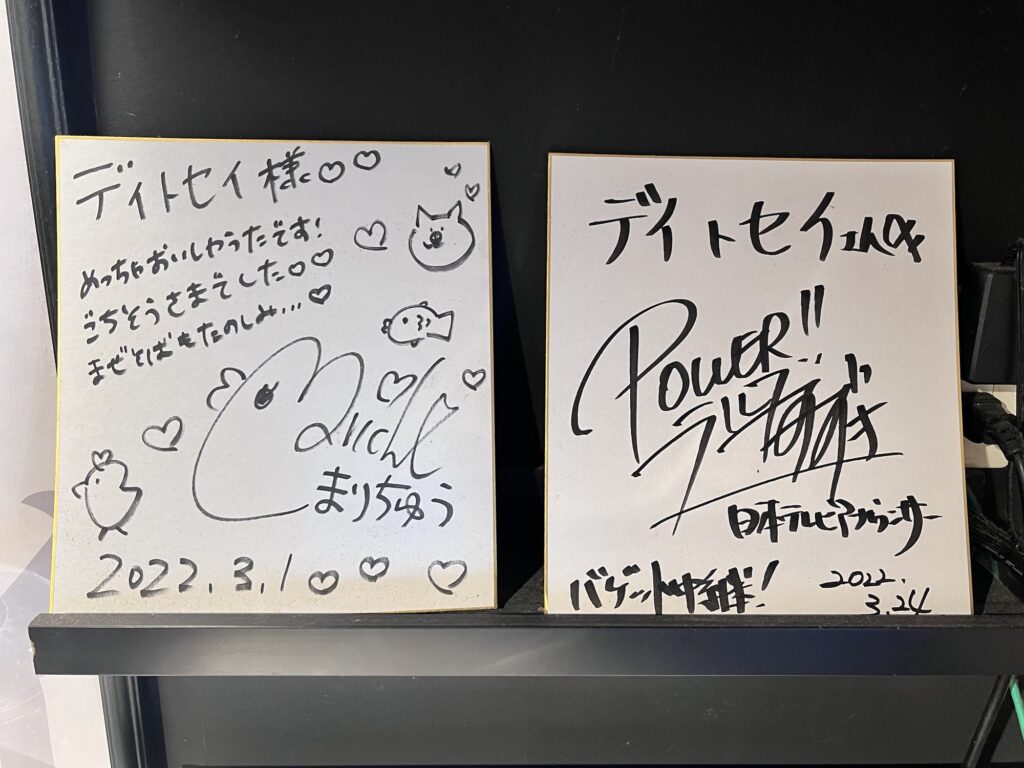 ディトセイ 様♡♡
めっちゃおいしかったです!
ごちそうさまでした♡♡
まぜそばもたのしみ...♡
まりちゅう
2022.3.1♡♡♡
ディトセイ
POWER!!
日本テレビアナウンサー
バゲット中継!
2022.
3.24